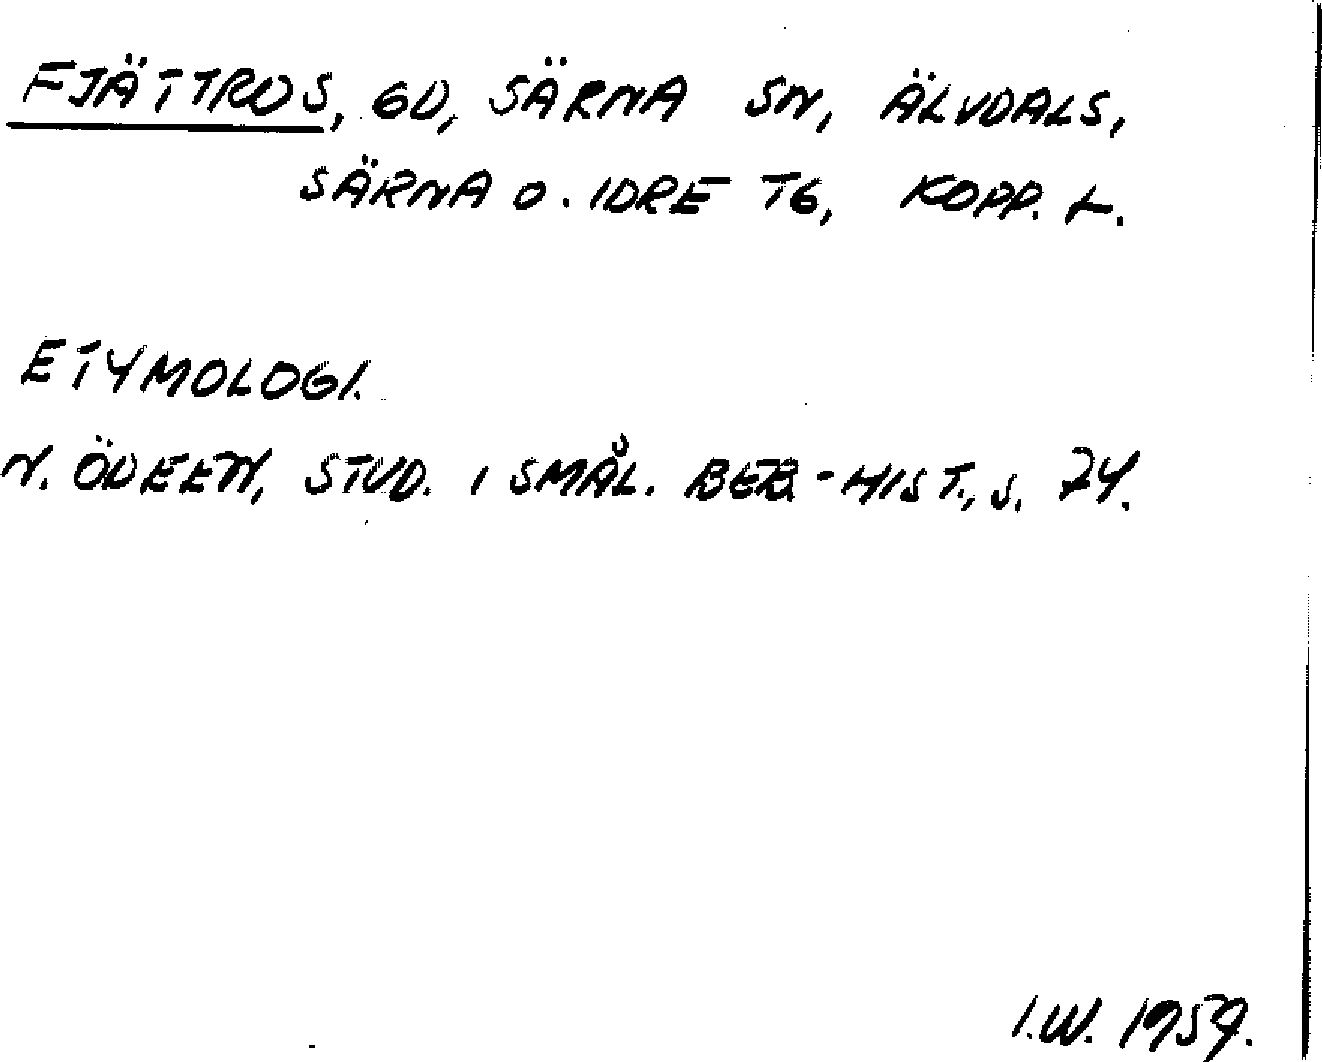 FJÄTTROS, GD, SÄRNA SN, ÄLVDALS,
SÄRNA O. IDRE TG, KOPP. L.
ETYMOLOGI.
N. ÖDEEN, STUD. I SMÅL. BEB.-HIST., S. 74.
I.W. 1959.